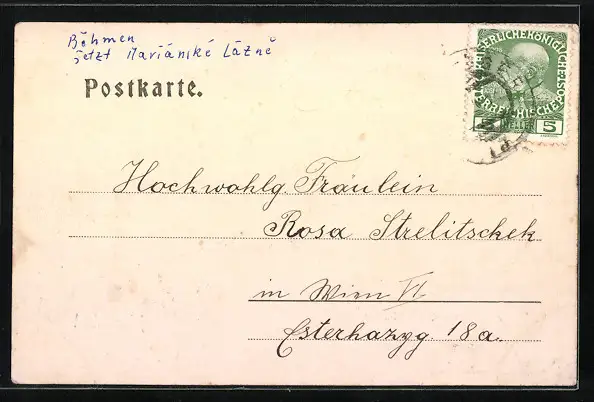 Böhmen
jetzt Mariánské Lázně
Postkarte.
KAISERLICHE KÖNIGLICHE
HELLER 5
Hochwohlg Fräulein
Rosa Strelitschek
in Wien VI
Esterhazyg 18a.